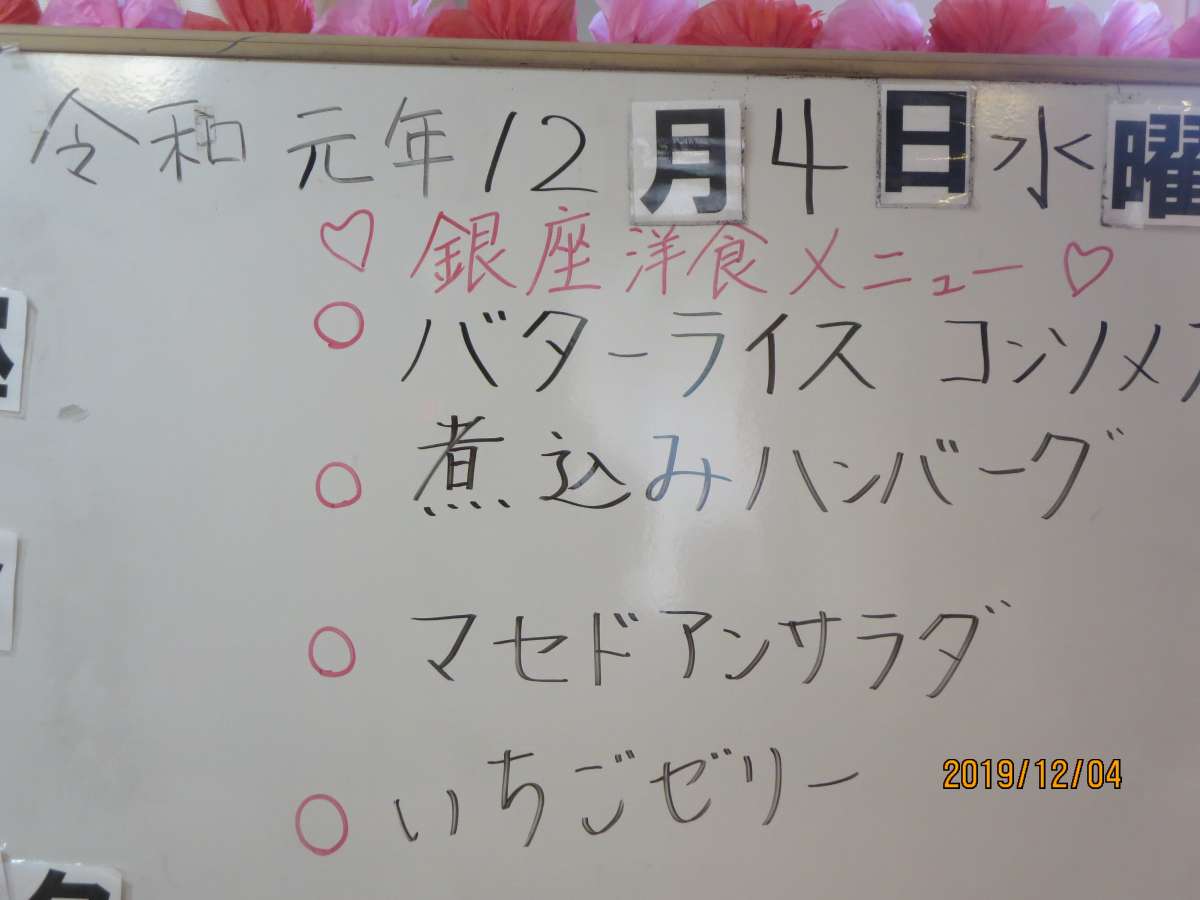 令和 元年 12月 4日 水曜
♡ 銀座洋食メニュー ♡
○ バターライス コンソメ
○ 煮込みハンバーグ
○ マセドアンサラダ
○ いちごゼリー
2019/12/04